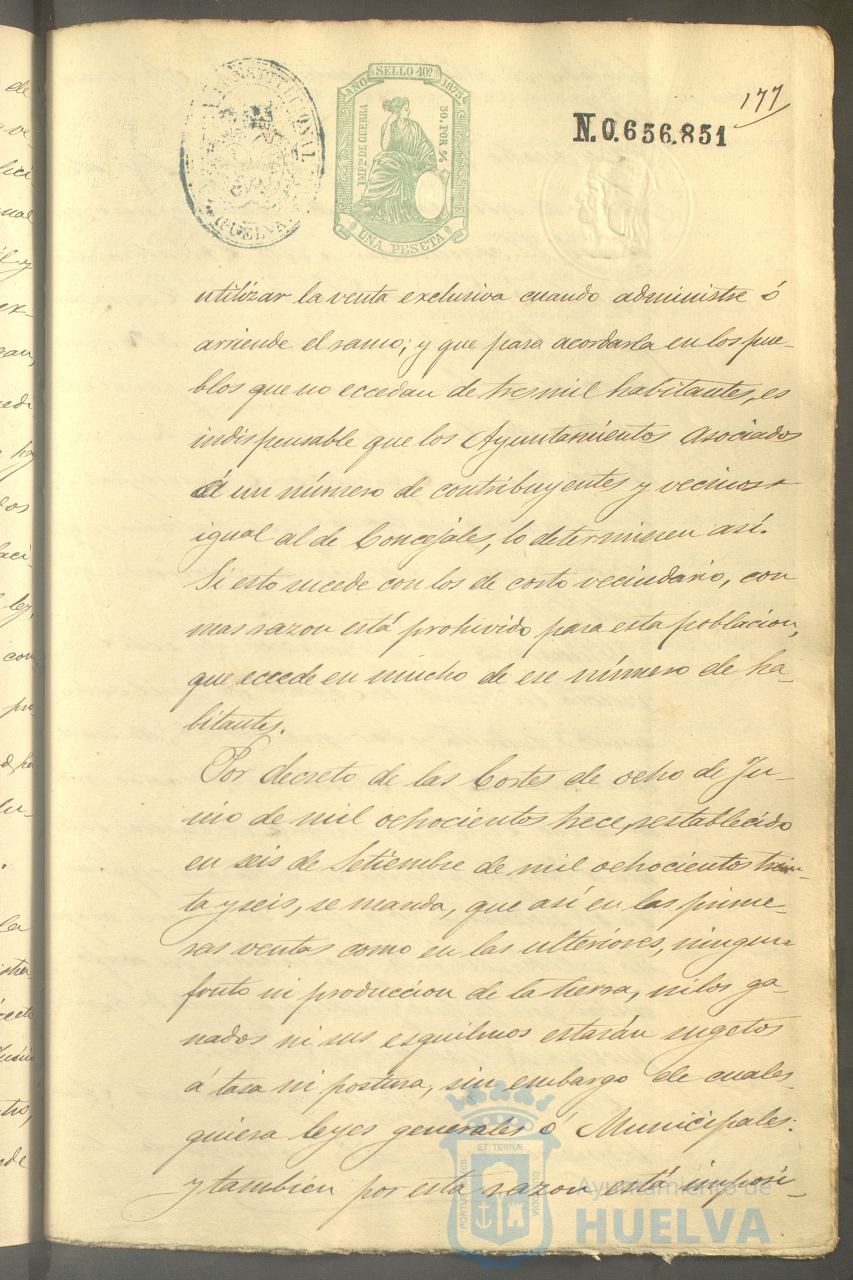 177
N.0.656.851
CONSTITUCIONAL
HUELVA
AÑO SELLO 10º 1875
IMPTO DE GUERRA
50. POR %
UNA PESETA
utilizar la venta exclusiva cuando administre ó
arriende el ramo; y que para acordarla en los pue-
blos que no eccedan de tresmil habitantes, es
indispensable que los Ayuntamientos asociados
á un número de contribuyentes y vecinos
igual al de Concejales, lo determinen así.
Si esto sucede con los de corto vecindario, con
mas razon está prohivido para esta poblacion,
que eccede en mucho de ese número de ha-
bitantes.
Por decreto de las Cortes de ocho de Ju-
nio de mil ochocientos trece, restablecido
en seis de Setiembre de mil ochocientos trein-
ta y seis, se manda, que así en las prime-
ras ventas como en las ulteriores, ningun
fruto ni produccion de la tierra, ni los ga-
nados ni sus esquilmos estarán sugetos
á tasa ni postura, sin embargo de cuales-
quiera leyes generales ó Municipales:
y tambien por esta razon está imposi-
ET TERRÆ
PORTUS MARIS
CUSTODIA
Ayuntamiento de
HUELVA